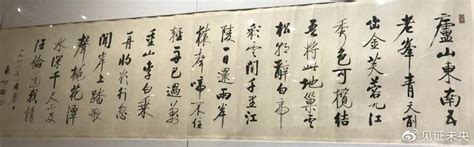 廬山東南五
老峯青天削
出金芙蓉九江
秀色可攬結
吾將此地巢雲
松朝辭白帝
彩雲間千里江
陵一日還兩岸
猿聲啼不住
輕舟已過萬
重山李白乘
舟將欲行忽
聞岸上踏歌
聲桃花潭
水深千尺不及
汪倫送我情
@见证未央